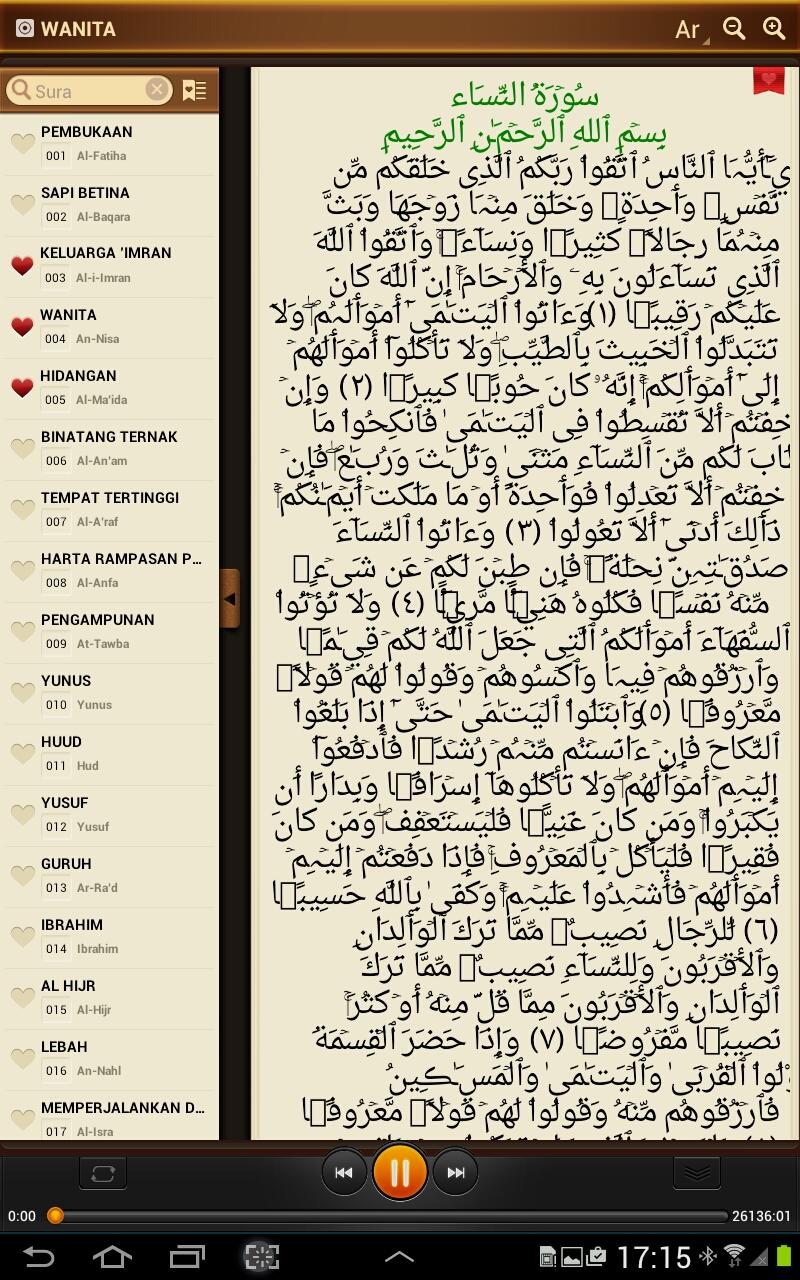 WANITA
Ar
Sura
PEMBUKAAN
001 Al-Fatiha
SAPI BETINA
002 Al-Baqara
KELUARGA 'IMRAN
003 Al-i-Imran
WANITA
004 An-Nisa
HIDANGAN
005 Al-Ma'ida
BINATANG TERNAK
006 Al-An'am
TEMPAT TERTINGGI
007 Al-A'raf
HARTA RAMPASAN P...
008 Al-Anfa
PENGAMPUNAN
009 At-Tawba
YUNUS
010 Yunus
HUUD
011 Hud
YUSUF
012 Yusuf
GURUH
013 Ar-Ra'd
IBRAHIM
014 Ibrahim
AL HIJR
015 Al-Hijr
LEBAH
016 An-Nahl
MEMPERJALANKAN D...
017 Al-Isra
سُورَةُ النِّسَاء
بِسۡمِ ٱللهِ ٱلرَّحۡمَـٰنِ ٱلرَّحِيمِ
يَـٰٓأَيُّہَا ٱلنَّاسُ ٱتَّقُواْ رَبَّكُمُ ٱلَّذِى خَلَقَكُم مِّن
نَّفۡسٍ۬ وَٲحِدَةٍ۬ وَخَلَقَ مِنۡہَا زَوۡجَهَا وَبَثَّ
مِنۡہُمَا رِجَالاً۬ كَثِيرً۬ا وَنِسَآءً۬‌ۚ وَٱتَّقُواْ ٱللَّهَ
ٱلَّذِى تَسَآءَلُونَ بِهِۦ وَٱلۡأَرۡحَامَ‌ۚ إِنَّ ٱللَّهَ كَانَ
عَلَيۡكُمۡ رَقِيبً۬ا (١) وَءَاتُواْ ٱلۡيَتَـٰمَىٰٓ أَمۡوَٲلَہُمۡ‌ۖ وَلَا
تَتَبَدَّلُواْ ٱلۡخَبِيثَ بِٱلطَّيِّبِ‌ۖ وَلَا تَأۡكُلُوٓاْ أَمۡوَٲلَهُمۡ
إِلَىٰٓ أَمۡوَٲلِكُمۡ‌ۚ إِنَّهُ ۥ كَانَ حُوبً۬ا كَبِيرً۬ا (٢) وَإِنۡ
خِفۡتُمۡ أَلَّا تُقۡسِطُواْ فِى ٱلۡيَتَـٰمَىٰ فَٱنكِحُواْ مَا
طَابَ لَكُم مِّنَ ٱلنِّسَآءِ مَثۡنَىٰ وَثُلَـٰثَ وَرُبَـٰعَ‌ۖ فَإِنۡ
خِفۡتُمۡ أَلَّا تَعۡدِلُواْ فَوَٲحِدَةً أَوۡ مَا مَلَكَتۡ أَيۡمَـٰنُكُمۡ‌ۚ
ذَٲلِكَ أَدۡنَىٰٓ أَلَّا تَعُولُواْ (٣) وَءَاتُواْ ٱلنِّسَآءَ
صَدُقَـٰتِہِنَّ نِحۡلَةً۬‌ۚ فَإِن طِبۡنَ لَكُمۡ عَن شَىۡءٍ۬
مِّنۡهُ نَفۡسً۬ا فَكُلُوهُ هَنِيٓـًٔ۬ا مَّرِيٓـًٔ۬ا (٤) وَلَا تُؤۡتُواْ
ٱلسُّفَهَآءَ أَمۡوَٲلَكُمُ ٱلَّتِى جَعَلَ ٱللَّهُ لَكُمۡ قِيَـٰمً۬ا
وَٱرۡزُقُوهُمۡ فِيہَا وَٱكۡسُوهُمۡ وَقُولُواْ لَهُمۡ قَوۡلاً۬
مَّعۡرُوفً۬ا (٥) وَٱبۡتَلُواْ ٱلۡيَتَـٰمَىٰ حَتَّىٰٓ إِذَا بَلَغُواْ
ٱلنِّكَاحَ فَإِنۡ ءَانَسۡتُم مِّنۡہُمۡ رُشۡدً۬ا فَٱدۡفَعُوٓاْ
إِلَيۡہِمۡ أَمۡوَٲلَهُمۡ‌ۖ وَلَا تَأۡكُلُوهَآ إِسۡرَافً۬ا وَبِدَارًا أَن
يَكۡبَرُواْ‌ۚ وَمَن كَانَ غَنِيًّ۬ا فَلۡيَسۡتَعۡفِفۡ‌ۖ وَمَن كَانَ
فَقِيرً۬ا فَلۡيَأۡكُلۡ بِٱلۡمَعۡرُوفِ‌ۚ فَإِذَا دَفَعۡتُمۡ إِلَيۡہِمۡ
أَمۡوَٲلَهُمۡ فَأَشۡہِدُواْ عَلَيۡہِمۡ‌ۚ وَكَفَىٰ بِٱللَّهِ حَسِيبً۬ا
(٦) لِّلرِّجَالِ نَصِيبٌ۬ مِّمَّا تَرَكَ ٱلۡوَٲلِدَانِ
وَٱلۡأَقۡرَبُونَ وَلِلنِّسَآءِ نَصِيبٌ۬ مِّمَّا تَرَكَ
ٱلۡوَٲلِدَانِ وَٱلۡأَقۡرَبُونَ مِمَّا قَلَّ مِنۡهُ أَوۡ كَثُرَ‌ۚ
نَصِيبً۬ا مَّفۡرُوضً۬ا (٧) وَإِذَا حَضَرَ ٱلۡقِسۡمَةَ
أُوْلُواْ ٱلۡقُرۡبَىٰ وَٱلۡيَتَـٰمَىٰ وَٱلۡمَسَـٰڪِينُ
فَٱرۡزُقُوهُم مِّنۡهُ وَقُولُواْ لَهُمۡ قَوۡلاً۬ مَّعۡرُوفً۬ا
0:00
26136:01
17:15